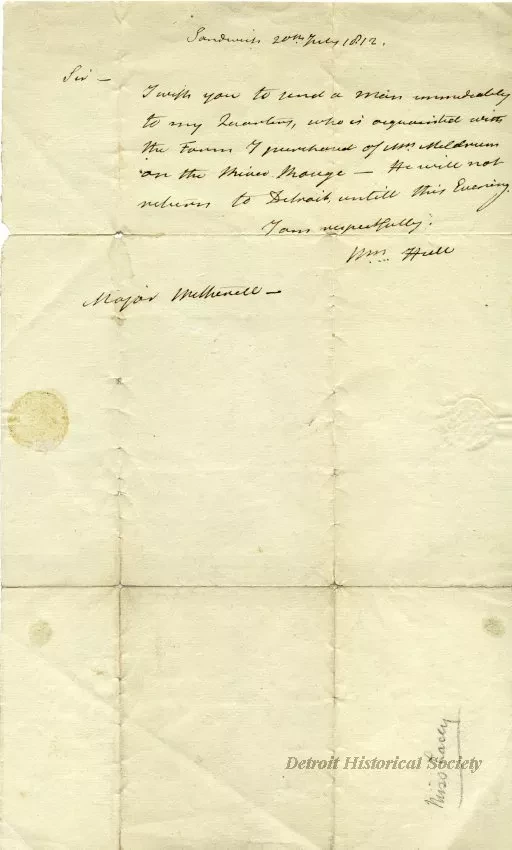 Sandwich 20th July 1812.
Sir —
I wish you to send a man immediately
to my Quarters, who is acquainted with
the Farm I purchased of Mrs Meldrum
on the River Rouge — He will not
return to Detroit untill this Evening.
I am respectfully.
Wm Hull
Major Witherell —
Detroit Historical Society
Miss Lacey